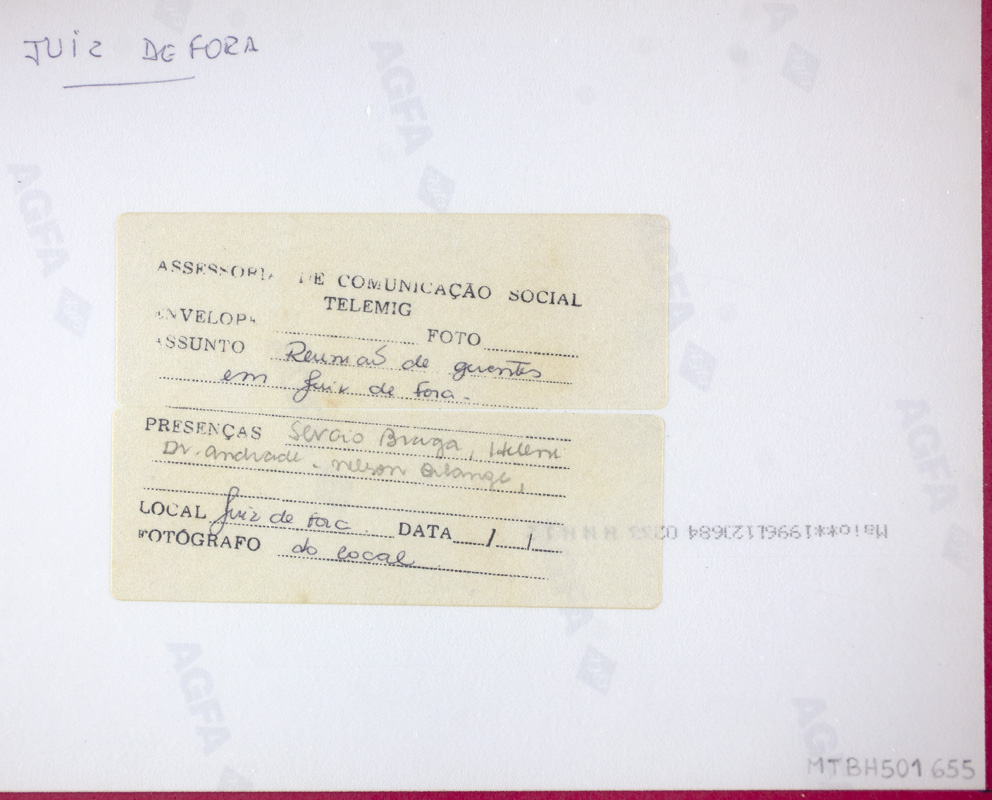 JUIZ DE FORA
AGFA
AGFA
AGFA
AGFA
AGFA
AGFA
ASSESSORIA DE COMUNICAÇÃO SOCIAL
TELEMIG
ENVELOPE FOTO
ASSUNTO Reunião de gerentes
em Juiz de Fora.
PRESENÇAS Sergio Braga, Heleni
Dr. Andrade - Nelson
LOCAL Juiz de Fora DATA / /
FOTÓGRAFO do local
Maio**1996L123684
MTBH501655